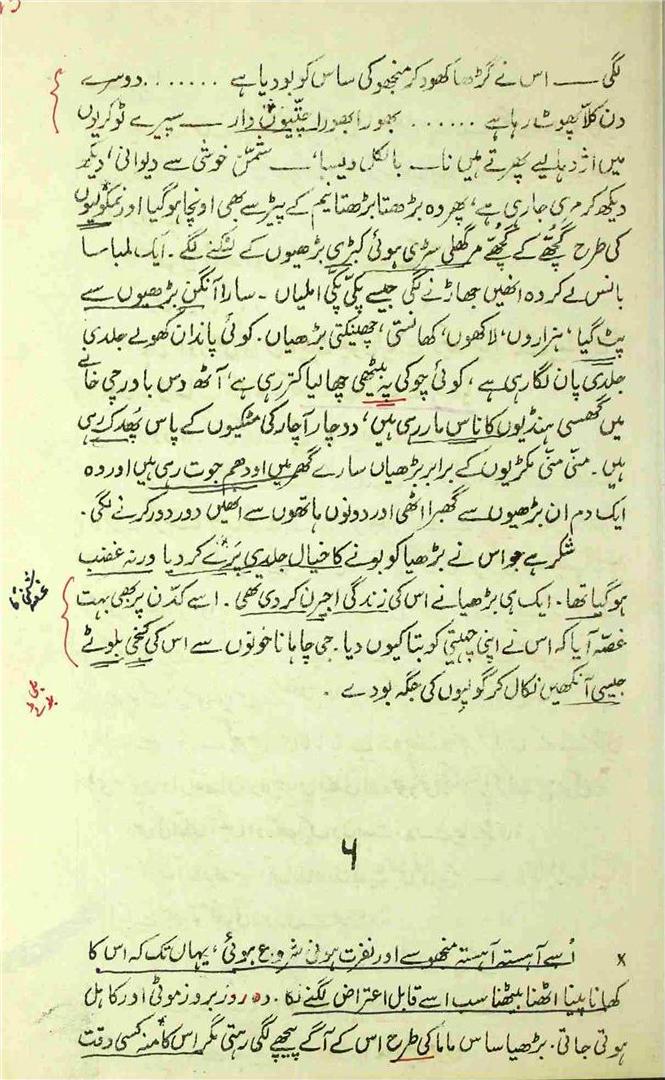 لگی ــــ اس نے گڑھا کھود کر منجھو کی ساس کو بو دیا ہے ....... دوسرے
دن کلا پھوٹ رہا ہے ...... بھورا بھورا چتیوں دار ــــ سپیرے ٹوکریوں
میں اژدہا لیے پھرتے ہیں نا ــــ بالکل ویسا، ــــ شمن خوشی سے دیوانی، دیکھ
دیکھ کر مری جا رہی ہے، پھر وہ بڑھتا بڑھتا نیم کے پیڑ سے بھی اونچا ہو گیا اور نمکولیوں
کی طرح گچھے کے گچھے مرگھلی سڑی ہوئی کبڑی بڑھیوں کے لٹکنے لگے ۔ ایک لمبا سا
بانس لے کر وہ انھیں جھاڑنے لگی جیسے پکی پکی املیاں ۔ سارا آنگن بڑھیوں سے
پٹ گیا، ہزاروں، لاکھوں، کھانستی، چھینکتی بڑھیاں. کوئی پاندان کھولے جلدی
جلدی پان لگا رہی ہے، کوئی چوکی پہ بیٹھی چھالیا کتر رہی ہے، آٹھ دس باورچی خانے
میں گھسی ہنڈیوں کا ناس مار رہی ہیں، دو چار آچار کی مٹکیوں کے پاس پھدک رہی
ہیں ۔ منی منی مکڑیوں کے برابر بڑھیاں سارے گھر میں اودھم جوت رہی ہیں اور وہ
ایک دم ان بڑھیوں سے گھبرا اٹھی اور دونوں ہاتھوں سے انھیں دور دور کرنے لگی ۔
شکر ہے جو اس نے بڑھیا کو بونے کا خیال جلدی پرے کر دیا ورنہ غضب
ہو گیا تھا ۔ ایک ہی بڑھیا نے اس کی زندگی اجیرن کر دی تھی ۔ اسے کدّن پر بھی بہت
غصہ آیا کہ اس نے اپنی چہیتی کو بتا کیوں دیا ۔ جی چاہا ناخونوں سے اس کی کنجی بلوٹے
جیسی آنکھیں نکال کر گولیوں کی جگہ بو دے ۔
۶
x اُسے آہستہ آہستہ منجھو سے اور نفرت ہونی شروع ہوئی، یہاں تک کہ اس کا
کھانا پینا اٹھنا بیٹھنا سب اسے قابل اعتراض لگنے لگا . وہ روز بروز موٹی اور کاہل
ہوتی جاتی . بڑھیا ساس ماما کی طرح اس کے آگے پیچھے لگی رہتی مگر اس کا منہ کسی وقت